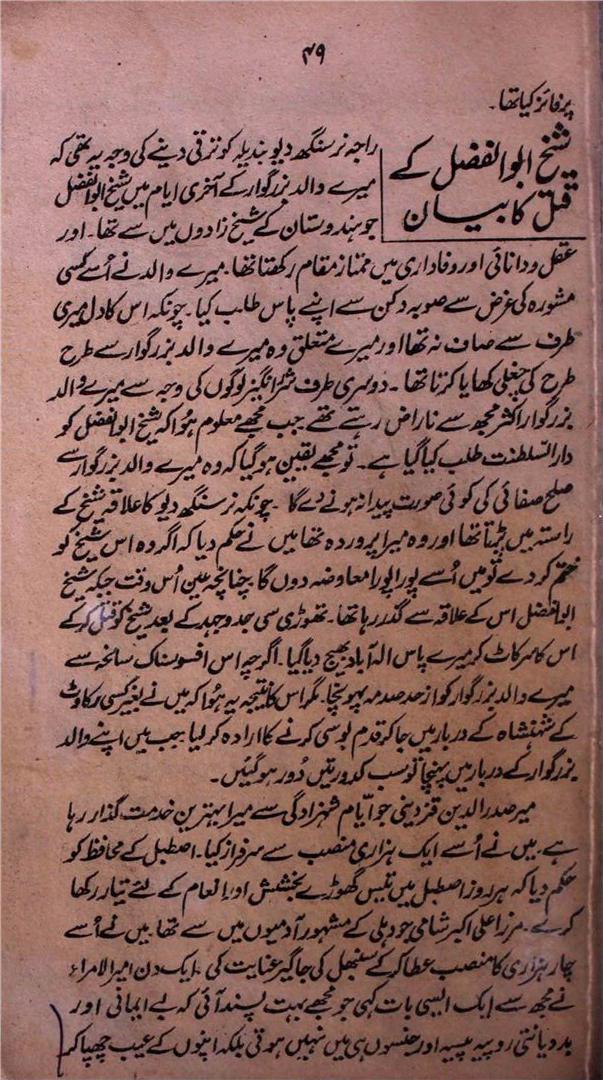 ۴۹
پر فائز کیا تھا۔
شیخ ابوالفضل کے
قتل کا بیان
راجہ نرسنگھ دیو بندیلہ کو ترقی دینے کی وجہ یہ تھی کہ
میرے والد بزرگوار کے آخری ایام میں شیخ ابوالفضل
جو ہندوستان کے شیخ زادوں میں سے تھا۔ اور
عقل و دانائی اور وفاداری میں ممتاز مقام رکھتا تھا۔ میرے والد نے اُسے کسی
مشورہ کی غرض سے صوبہ دکن سے اپنے پاس طلب کیا۔ چونکہ اس کا دل میری
طرف سے صاف نہ تھا اور میرے متعلق وہ میرے والد بزرگوار سے طرح
طرح کی چغلی کھایا کرتا تھا۔ دوسری طرف شر انگیز لوگوں کی وجہ سے میرے والد
بزرگوار اکثر مجھ سے ناراض رہتے تھے جب مجھے معلوم ہُوا کہ شیخ ابوالفضل کو
دارالسلطنت طلب کیا گیا ہے۔ تو مجھے یقین ہو گیا کہ وہ میرے والد بزرگوار سے
صلح صفائی کی کوئی صورت پیدا نہ ہونے دے گا۔ چونکہ نرسنگھ دیو کا علاقہ شیخ کے
راستہ میں پڑتا تھا اور وہ میرا پروردہ تھا میں نے حکم دیا کہ اگر وہ اس شیخ کو
ختم کر دے تو میں اُسے پورا پورا معاوضہ دوں گا چنانچہ عین اُس وقت جبکہ شیخ
ابوالفضل اس کے علاقہ سے گذر رہا تھا۔ تھوڑی سی جدوجہد کے بعد شیخ کو قتل کر کے
اس کا سر کاٹ کر میرے پاس الہ آباد بھیج دیا گیا۔ اگرچہ اس افسوسناک سانحہ سے
میرے والد بزرگوار کو از حد صدمہ پہونچا۔ مگر اس کا نتیجہ یہ ہُوا کہ میں نے بغیر کسی رکاوٹ
کے شہنشاہ کے دربار میں جا کر قدم بوسی کرنے کا ارادہ کر لیا جب میں اپنے والد
بزرگوار کے دربار میں پہنچا تو سب کدورتیں دُور ہو گئیں۔
میر صدرالدین قزدینی جو ایّام شہزادگی سے میرا بہترین خدمت گذار رہا
ہے۔ میں نے اُسے ایک ہزاری منصب سے سرفراز کیا۔ اصطبل کے محافظ کو
حکم دیا کہ ہر روز اصطبل میں تیس گھوڑے بخشش اور انعام کے لئے تیار رکھا
کرے۔ مرزا علی اکبر شامی جو دہلی کے مشہور آدمیوں میں سے تھا۔ میں نے اُسے
چار ہزاری کا منصب عطا کر کے سنبھل کی جاگیر عنایت کی۔ ایک دن امیر الامراء
نے مجھ سے ایک ایسی بات کہی جو مجھے بہت پسند آئی کہ بے ایمانی اور
بددیانتی روپیہ پیسہ اور جنسوں ہی میں نہیں ہوتی بلکہ اپنوں کے عیب چھپا کر